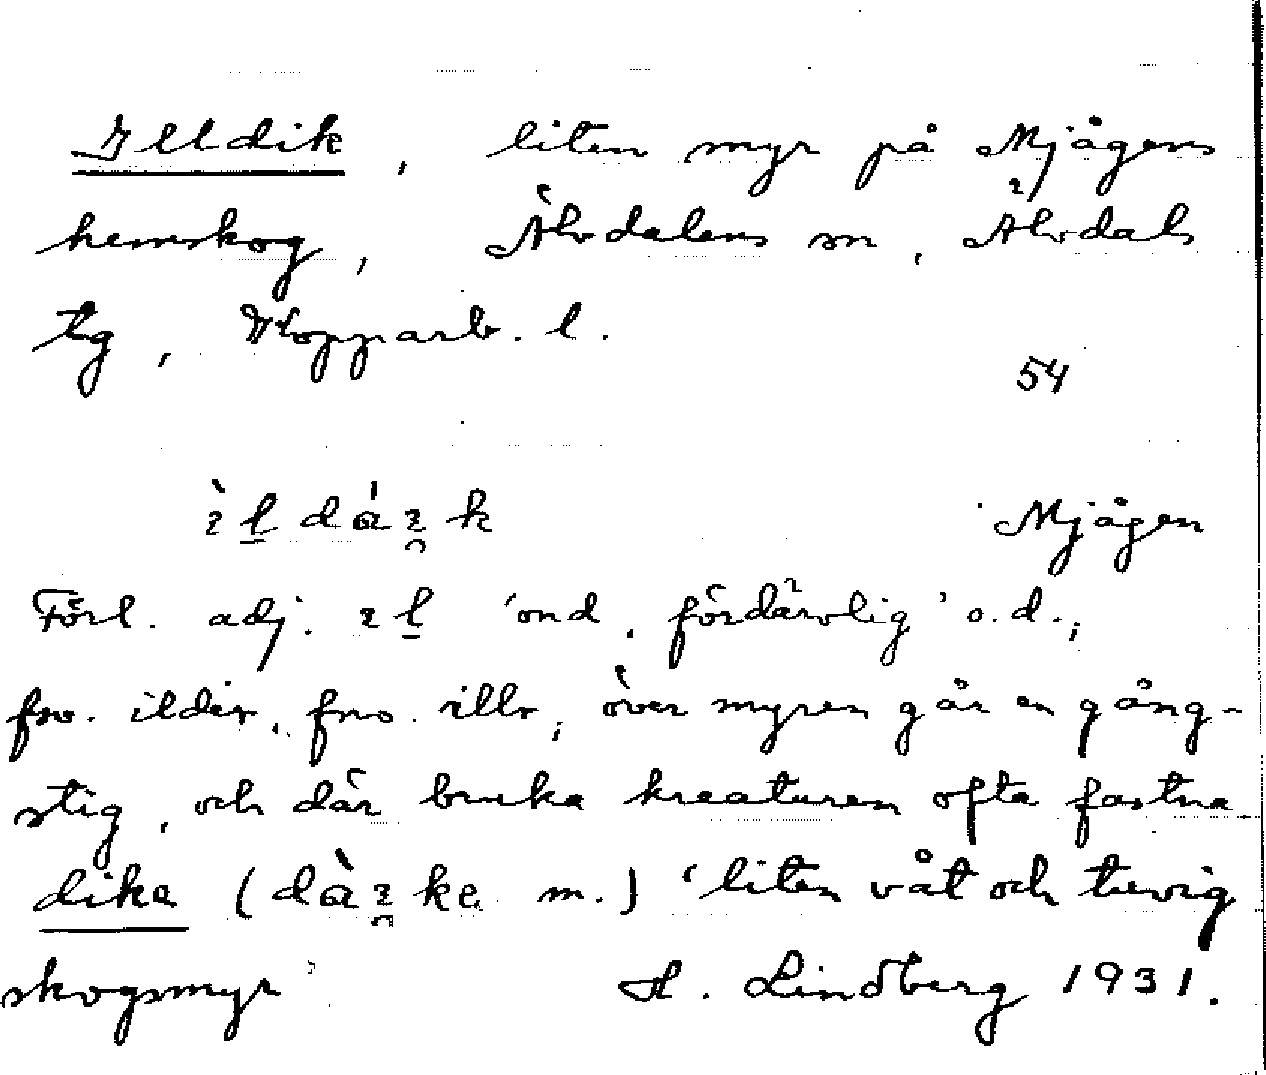 Illdik, liten myr på Mjågens
hemskog, Älvdalens sn, Älvdals
tg, Kopparb. l.
54
ìl dàik Mjågen
Förl. adj. il 'ond, fördärvlig' o.d.;
fsv. ilder, fno. illr; över myren går en gång-
stig, och där bruka kreaturen ofta fastna
dike (dàike m.) 'liten våt och tuvig
skogsmyr' H. Lindberg 1931.